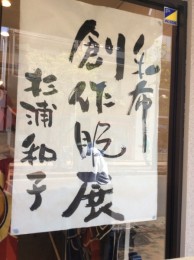 創作服展
杉浦和子